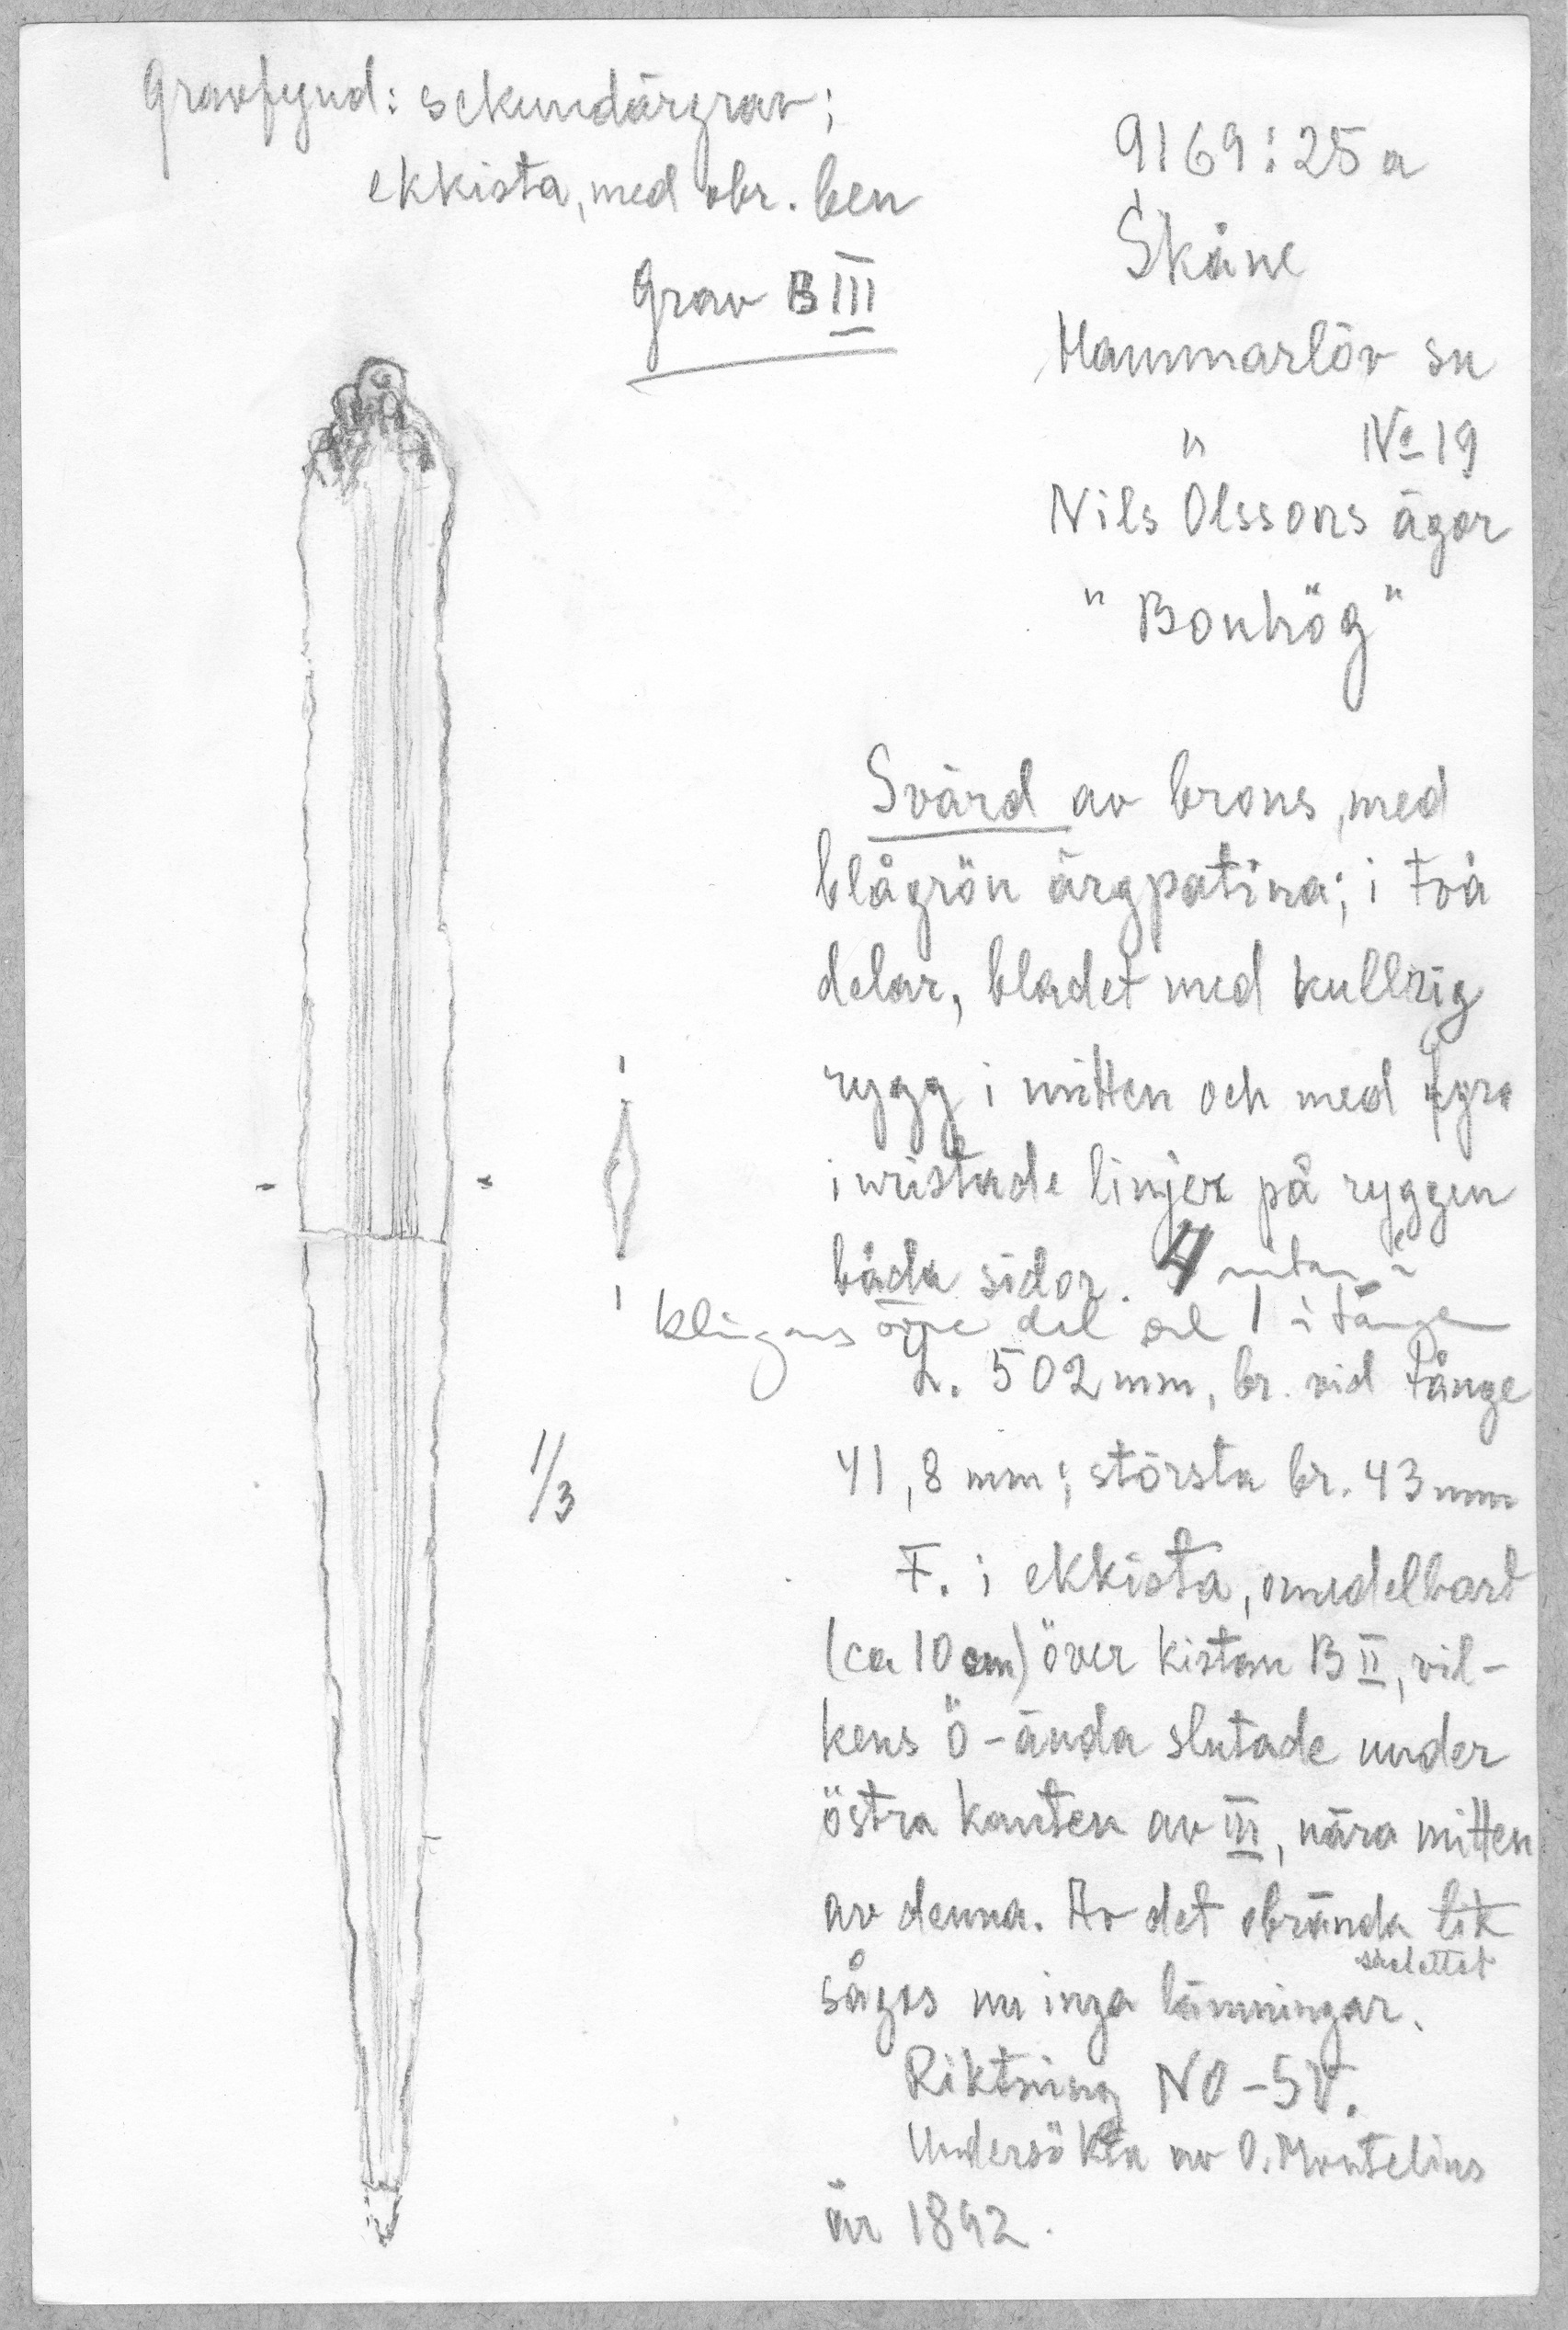 Gravfynd: sekundärgrav;
ekkista, med obr. ben
Grav B III
9169:25a
Skåne
Hammarlöv sn
" No 19
Nils Olssons ägor
"Bonhög"
Svärd av brons, med
blågrön ärgpatina; i två
delar, bladet med kullrig
rygg i mitten och med fyra
inristade linjer på ryggen
båda sidor. 4 nitar i
klingans övre del och 1 i tånge
L. 502 mm, br. vid tånge
41,8 mm; största br. 43 mm
1/3
F. i ekkista, omedelbart
(ca 10 cm) över kistan B II, vil-
kens Ö-ända slutade under
östra kanten av III, nära mitten
av denna. Av det obrända lik
skelettet
sågos nu inga lämningar.
Riktning NO-SV.
Undersökta av O. Montelius
år 1892.